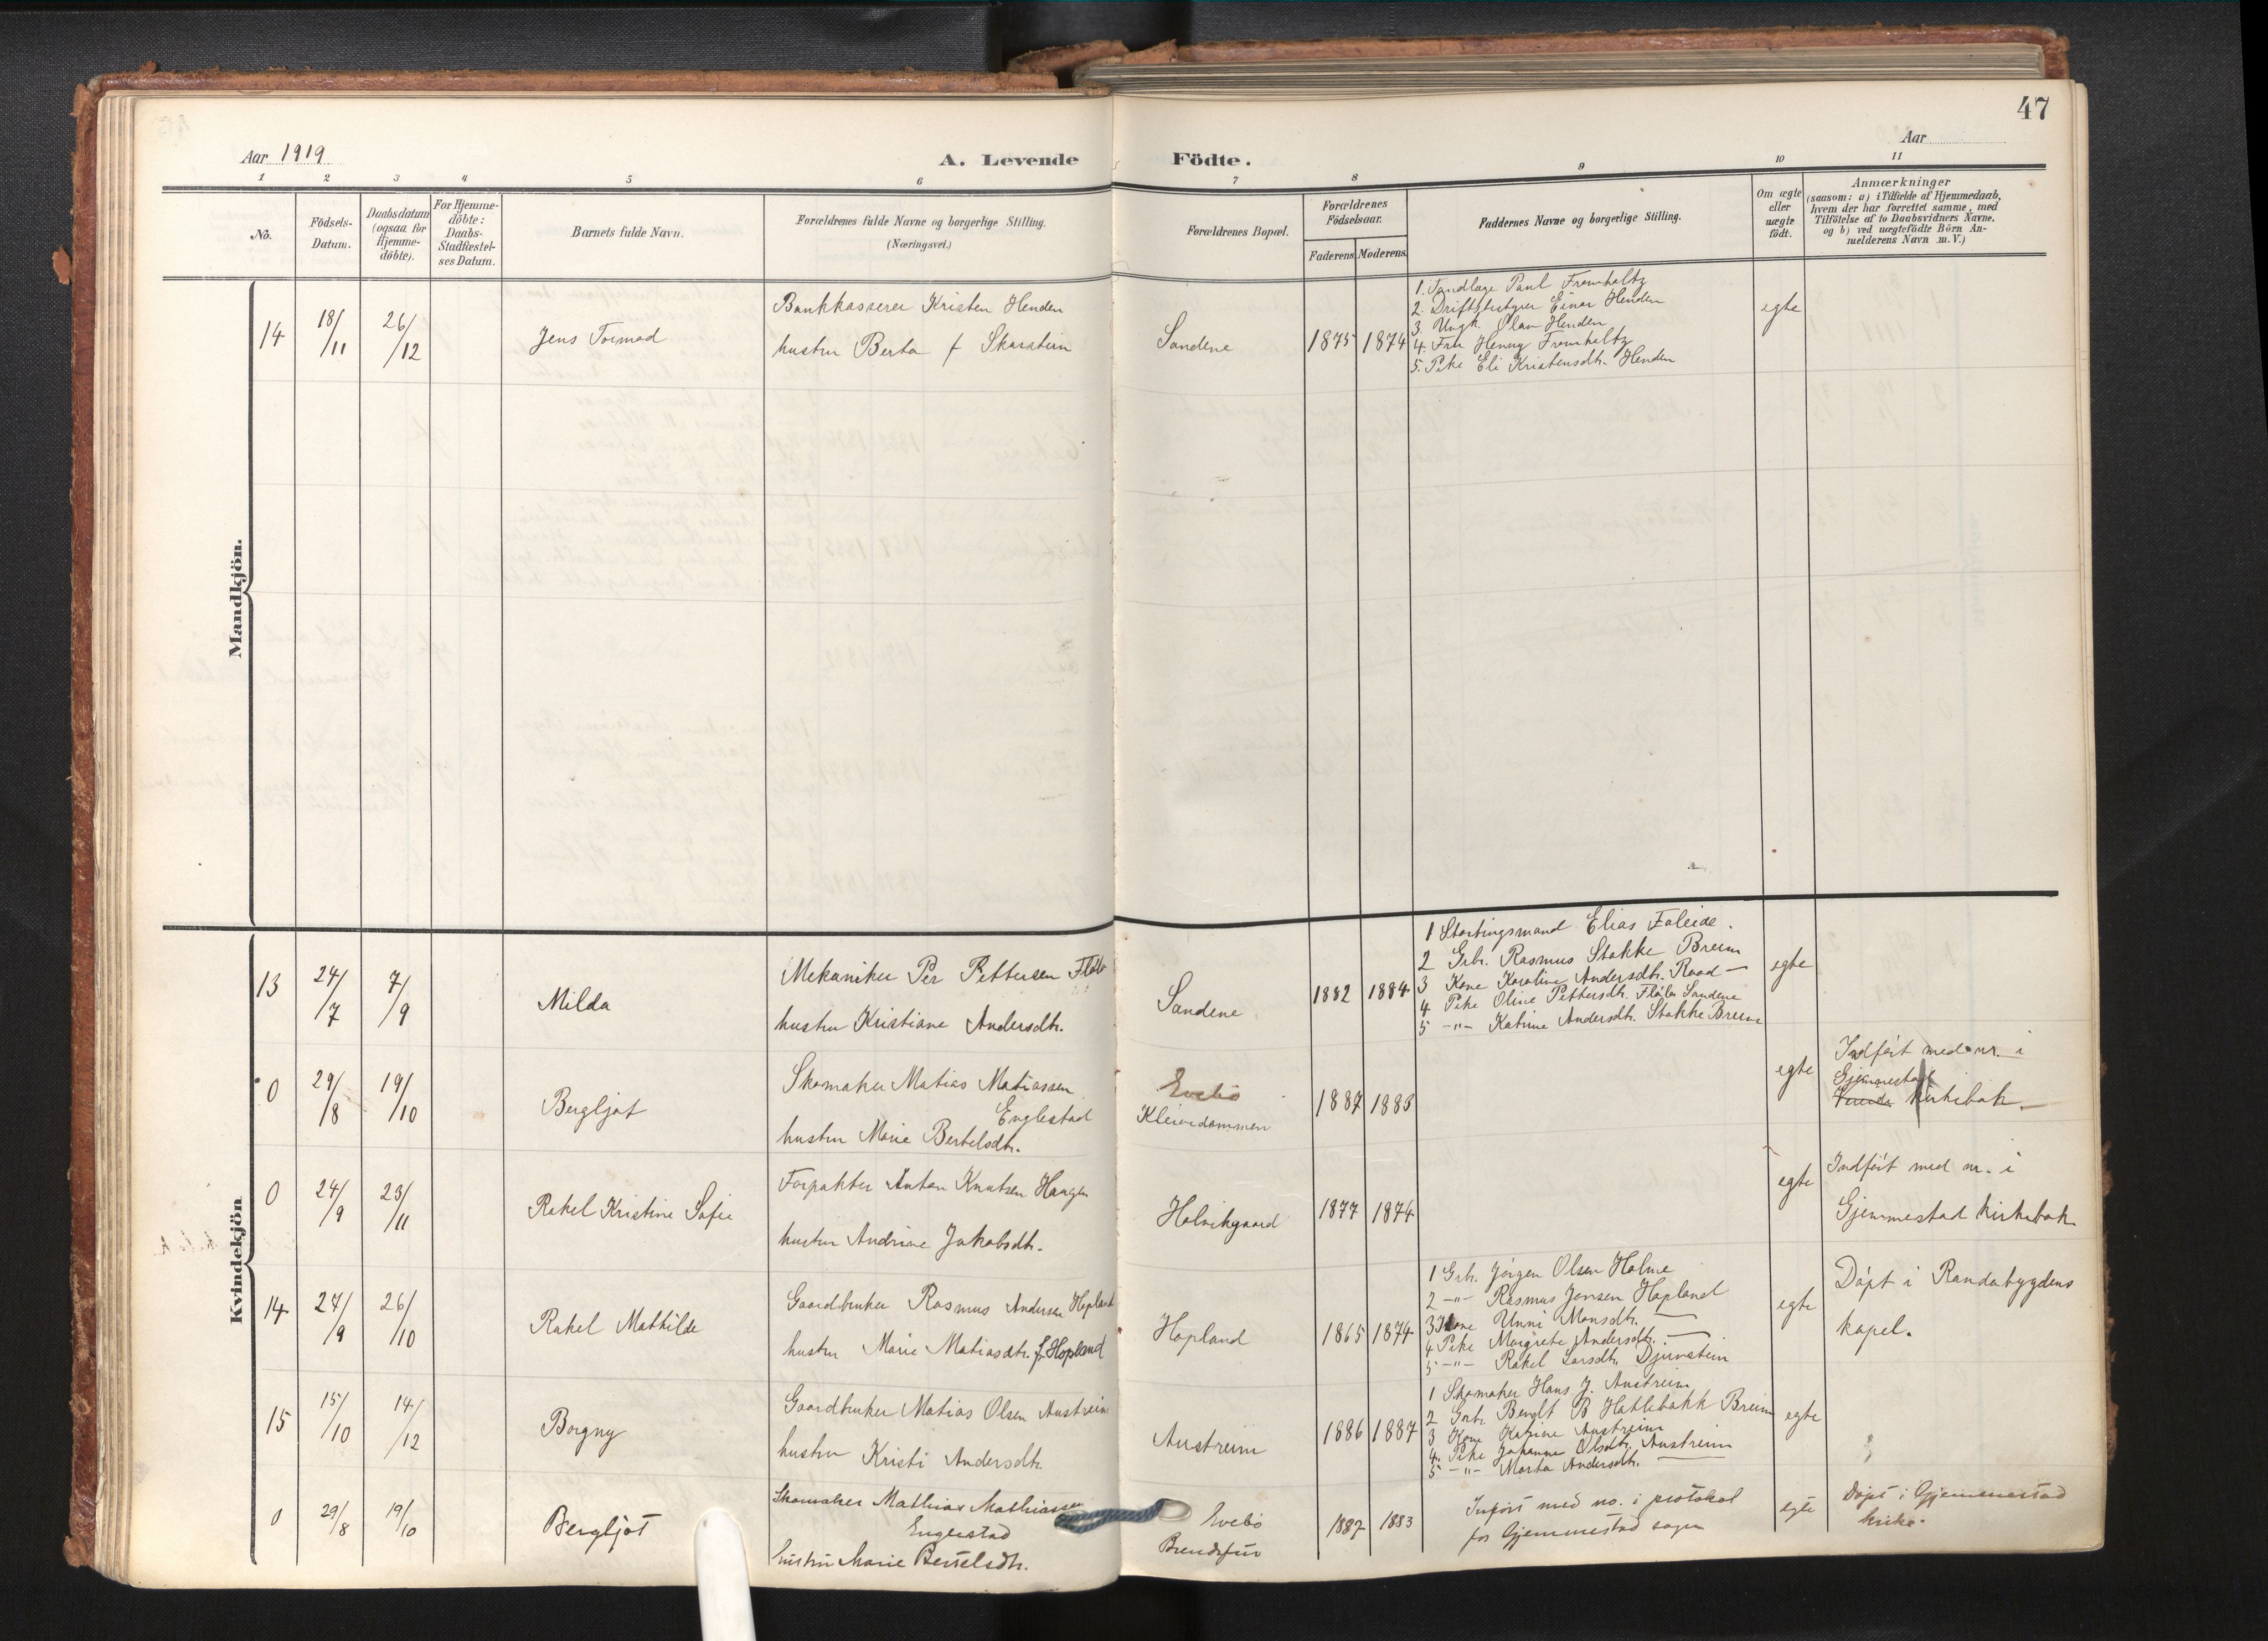 47
Aar 1919
A. Levende Födte.
Aar
1 2 3 4 5 6 7 8 9 10 11
No.
Födsels-
Datum.
Daabsdatum
(ogsaa for
Hjemme-
döbte).
For Hjemme-
döbte:
Daabs-
Stadfæstel-
ses Datum.
Barnets fulde Navn.
Forældrenes fulde Navne og borgerlige Stilling.
(Næringsvei.)
Forældrenes Bopæl.
Forældrenes
Födselsaar.
Faderens Moderens
Faddernes Navne og borgerlige Stilling.
Om ægte
eller
uægte
födt.
Anmærkninger
(saasom: a) i Tilfælde af Hjemmedaab,
hvem der har forrettet samme, med
Tilföielse af to Daabsvidners Navne.
og b) ved uægtefödte Börn An-
melderens Navn m. V.)
Mandkjön.
14
18/11
26/12
Jens Tormod
Bankkasserer Kristen Henden
hustru Berta f Skarstein
Sandene
1875 1874
1. Tandlæge Paul Fromholtz
2. Driftsbestyrer Einar Henden
3. Ungk. Olav Henden
4. Fru Henny Fromholtz
5. Pike Eli Kristensdtr. Henden
egte
Kvindekjön
13
24/7
7/9
Milda
Mekaniker Per Pettersen Fløtbo
hustru Kristiane Andersdtr.
Sandene
1882 1884
1 Stortingsmand Elias Faleide.
2 Grbr. Rasmus Stokke Breim
3 Kone Karoline Andersdtr. Raad —
4 Pike Oline Pettersdtr. Sandene
5 -"- Katrine Andersdtr. Stokke Breim
egte
0
29/8
19/10
Bergljot
Skomaker Matias Matiassen
Englestad
hustru Marie Bertelsdtr.
Evebø
Kleivedammen
1887 1883
egte
Indført med nr. i
Gjemmestad
kirkebok.
0
24/9
23/11
Rakel Kristine Sofie
Forpakter Anton Knutsen Haugen
hustru Andrine Jakobsdtr.
Holvikgaard
1877 1874
egte
Indført med nr. i
Gjemmestad kirkebok
14
27/9
26/10
Rakel Mathilde
Gaardbruker Rasmus Andersen Hopland
hustru Marie Matiasdtr. f. Hopland
Hopland
1865 1874
1 Grbr. Jørgen Olsen Holme
2 -"- Rasmus Jonsen Hopland
3 Kone Unni Monsdtr. —
4 Pike Margrete Andersdtr. —
5 -"- Rakel Larsdtr. Djuvstein
egte
Døpt i Randabygdens
kapel.
15
15/10
14/12
Borgny
Gaardbruker Matias Olsen Austreim
hustru Kristi Andersdtr.
Austreim
1886 1887
1 Skomaker Hans J. Austreim
2 Grbr. Bendt B Hatlebakk Breim
3 Kone Katrine Austreim
4. Pike Johanne Olsdtr. Austreim
5 -"- Marta Andersdtr. —
egte
0
29/8
19/10
Bergljot
Skomaker Mathias Mathiassen
Englestad
hustru Marie Bertelsdtr.
Evebø
1887 1883
Inført med no. i protokol
for Gjemmestad sogn
egte
Døpt i Gjemmestad
kirke.